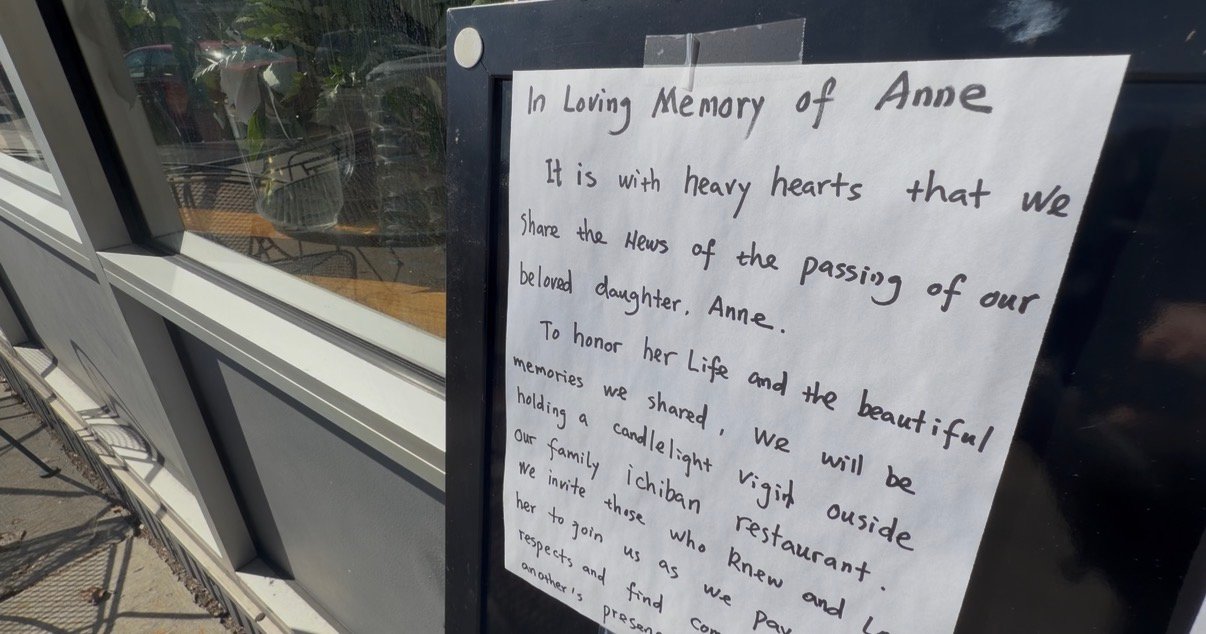 In Loving Memory of Anne
It is with heavy hearts that we
share the News of the passing of our
beloved daughter, Anne.
To honor her Life and the beautiful
memories we shared, we will be
holding a candlelight vigil ouside
our family ichiban restaurant.
We invite those who knew and
her to join us as we pay
respects and find
another's